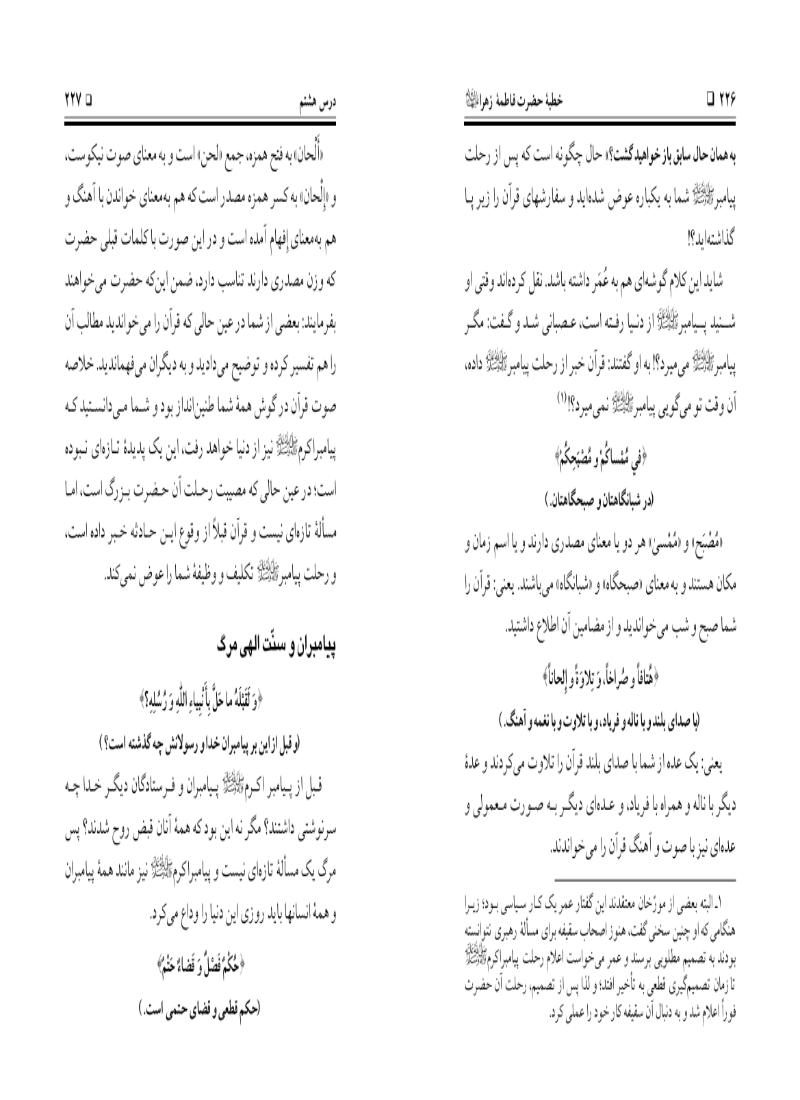 ۲۲۶ □ خطبهٔ حضرت فاطمهٔ زهرا
به همان حال سابق باز خواهید گشت؟» حال چگونه است که پس از رحلت
پیامبرﷺ شما به یکباره عوض شده‌اید و سفارشهای قرآن را زیر پا
گذاشته‌اید؟!
شاید این کلام گوشه‌ای هم به عُمَر داشته باشد. نقل کرده‌اند وقتی او
شنید پیامبرﷺ از دنیا رفته است، عصبانی شد و گفت: مگر
پیامبرﷺ می‌میرد؟! به او گفتند: قرآن خبر از رحلت پیامبرﷺ داده،
آن وقت تو می‌گویی پیامبرﷺ نمی‌میرد؟!(۱)
﴿في مُمْساكُمْ و مُصْبَحِكُمْ﴾
(در شبانگاهتان و صبحگاهتان.)
«مُصْبَح» و «مُمْسیٰ» هر دو یا معنای مصدری دارند و یا اسم زمان و
مکان هستند و به معنای «صبحگاه» و «شبانگاه» می‌باشند. یعنی: قرآن را
شما صبح و شب می‌خواندید و از مضامین آن اطلاع داشتید.
﴿هُتافاً و صُراخاً، وَ تِلاوَةً و إلحاناً﴾
(با صدای بلند و با ناله و فریاد، و با تلاوت و با نغمه و آهنگ.)
یعنی: یک عده از شما با صدای بلند قرآن را تلاوت می‌کردند و عدهٔ
دیگر با ناله و همراه با فریاد، و عده‌ای دیگر به صورت معمولی و
عده‌ای نیز با صوت و آهنگ قرآن را می‌خواندند.
۱ـ البته بعضی از مورّخان معتقدند این گفتار عمر یک کار سیاسی بود؛ زیرا
هنگامی که او چنین سخنی گفت، هنوز اصحاب سقیفه برای مسألهٔ رهبری نتوانسته
بودند به تصمیم مطلوبی برسند و عمر می‌خواست اعلام رحلت پیامبراکرمﷺ
تا زمان تصمیم‌گیری قطعی به تأخیر افتد؛ و لذا پس از تصمیم، رحلت آن حضرت
فوراً اعلام شد و به دنبال آن سقیفه کار خود را عملی کرد.
درس هشتم □ ۲۲۷
«أَلْحان» به فتح همزه، جمع «لحن» است و به معنای صوت نیکوست،
و «إلْحان» به کسر همزه مصدر است که هم به‌معنای خواندن با آهنگ و
هم به‌معنای إفهام آمده است و در این صورت با کلمات قبلی حضرت
که وزن مصدری دارند تناسب دارد، ضمن این‌که حضرت می‌خواهند
بفرمایند: بعضی از شما در عین حالی که قرآن را می‌خواندید مطالب آن
را هم تفسیر کرده و توضیح می‌دادید و به دیگران می‌فهماندید. خلاصه
صوت قرآن در گوش همهٔ شما طنین‌انداز بود و شما می‌دانستید که
پیامبراکرمﷺ نیز از دنیا خواهد رفت، این یک پدیدهٔ تازه‌ای نبوده
است؛ در عین حالی که مصیبت رحلت آن حضرت بزرگ است، اما
مسألهٔ تازه‌ای نیست و قرآن قبلاً از وقوع این حادثه خبر داده است،
و رحلت پیامبرﷺ تکلیف و وظیفهٔ شما را عوض نمی‌کند.
پیامبران و سنّت الهی مرگ
﴿وَ لَقَبْلَهُ ما حَلَّ بِأَنْبِياءِ اللّٰهِ وَ رُسُلِهِ؟﴾
(و قبل از این بر پیامبران خدا و رسولانش چه گذشته است؟)
قبل از پیامبر اکرمﷺ پیامبران و فرستادگان دیگر خدا چه
سرنوشتی داشتند؟ مگر نه این بود که همهٔ آنان قبض روح شدند؟ پس
مرگ یک مسألهٔ تازه‌ای نیست و پیامبراکرمﷺ نیز مانند همهٔ پیامبران
و همهٔ انسانها باید روزی این دنیا را وداع می‌کرد.
﴿حُكْمٌ فَصْلٌ وَ قَضاءٌ حَتْمٌ﴾
(حکم قطعی و قضای حتمی است.)